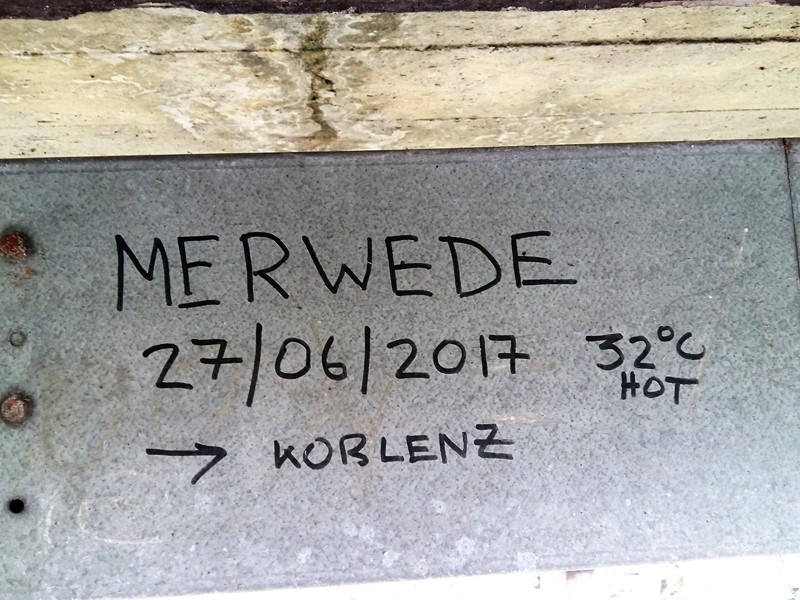 MERWEDE
27/06/2017 32°C
HOT
→ KOBLENZ